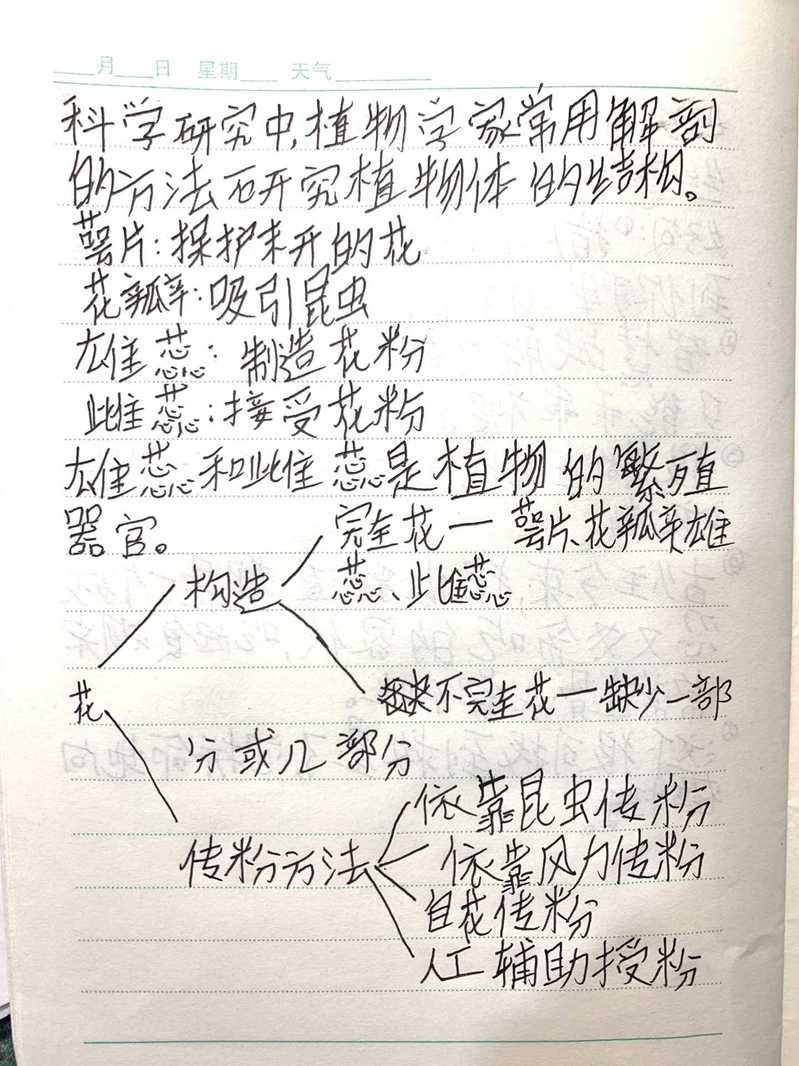 月 日 星期 天气
科学研究中,植物学家常用解剖
的方法研究植物体的结构。
萼片:保护未开的花
花瓣:吸引昆虫
雄蕊:制造花粉
雌蕊:接受花粉
雄蕊和雌蕊是植物的繁殖
器官。
完全花—萼片、花瓣、雄
构造 蕊、雌蕊
花 不完全花—缺少一部
分或几部分
依靠昆虫传粉
传粉方法 依靠风力传粉
自花传粉
人工辅助授粉